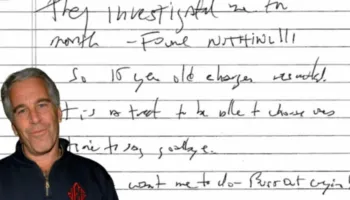 They investigated me for
month - FOUND NOTHING!!!
So 15 year old charges resulted.
It is a treat to be able to choose
time to say goodbye.
want me to do - Burst out cryin!